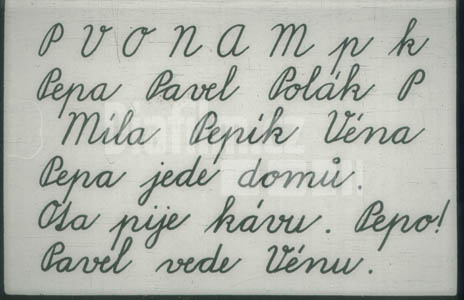 P V O N A M p k
Pepa Pavel Polák P
Míla Pepík Véna
Pepa jede domů.
Ota pije kávu. Pepo!
Pavel vede Vénu.